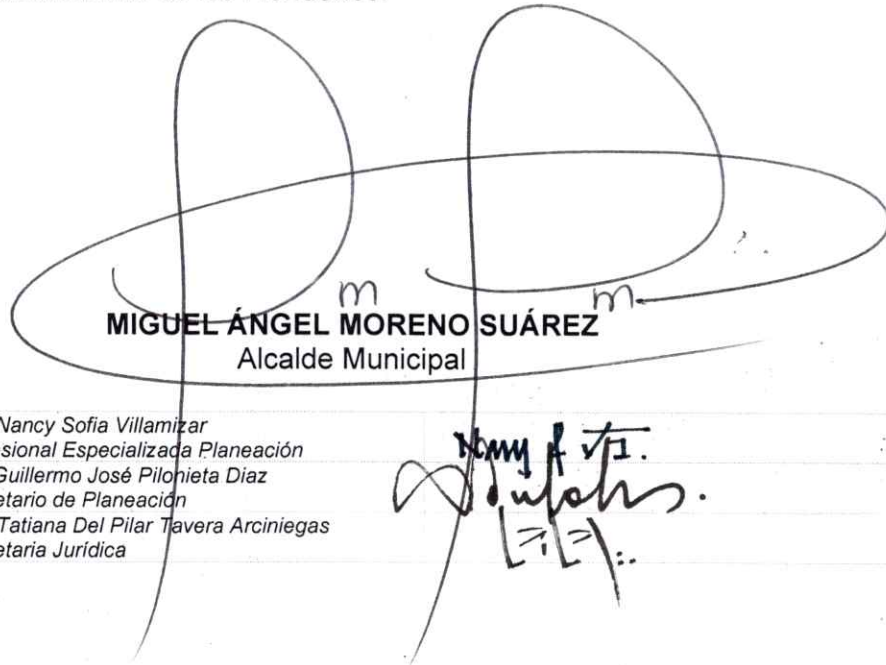 m m
MIGUEL ÁNGEL MORENO SUÁREZ
Alcalde Municipal
Nancy Sofia Villamizar
sional Especializada Planeación
Guillermo José Pilonieta Diaz
etario de Planeación
Tatiana Del Pilar Tavera Arciniegas
etaria Jurídica